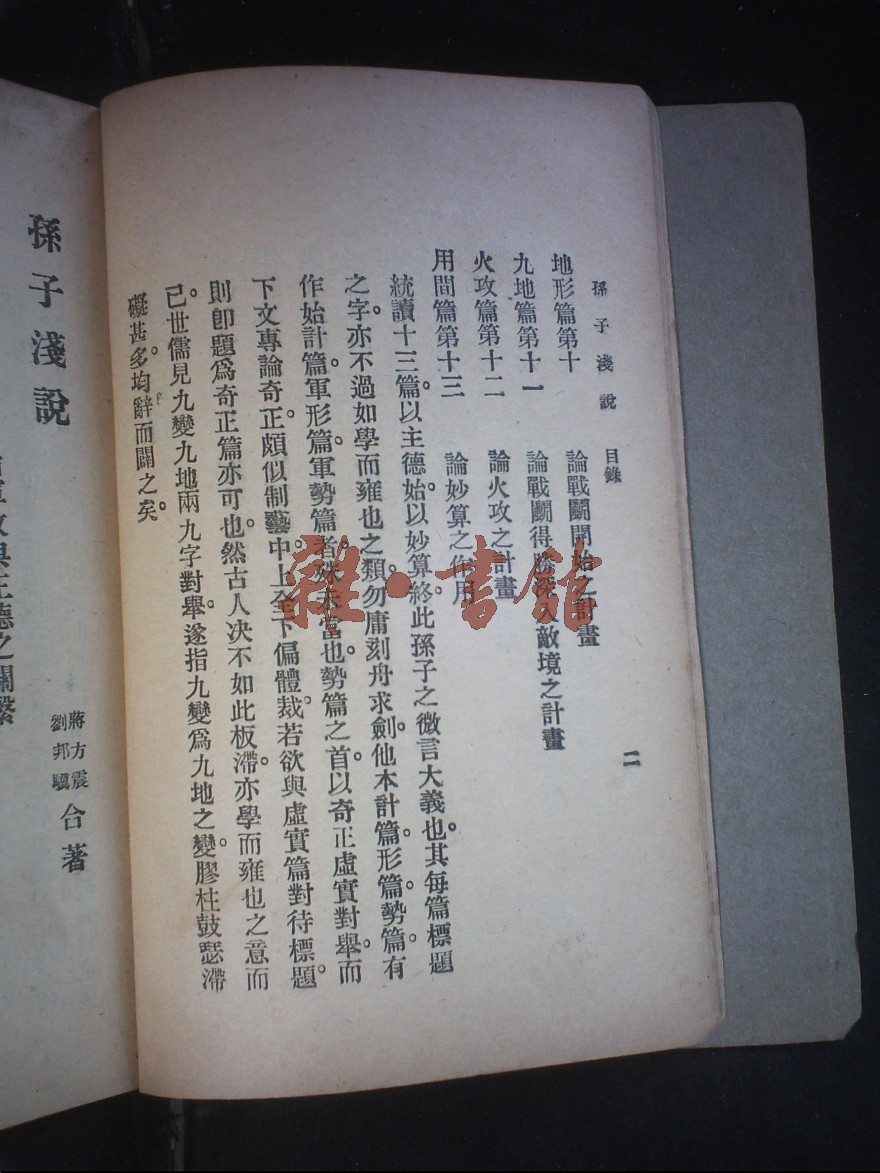 孫子淺說 目錄 二
地形篇第十 論戰鬭開始之計畫
九地篇第十一 論戰鬭得勝深入敵境之計畫
火攻篇第十二 論火攻之計畫
用間篇第十三 論妙算之作用
統讀十三篇。以主德始。以妙算終。此孫子之微言大義也。其每篇標題
之字。亦不過如學而雍也之類。勿庸刻舟求劍。他本計篇。形篇。勢篇。有
作始計篇。軍形篇。軍勢篇者。殊未當也。勢篇之首。以奇正虛實對舉。而
下文專論奇正。頗似制藝中。上全下偏體裁。若欲與虛實篇對待標題。
則卽題爲奇正篇亦可也。然古人決不如此板滯。亦學而雍也之意而
已。世儒見九變九地兩九字對舉。遂指九變爲九地之變。膠柱鼓瑟。滯
礙甚多。均辭而闢之矣。
孫子淺說
蔣方震
劉邦驥 合著
與主德之關繫
雜·書館